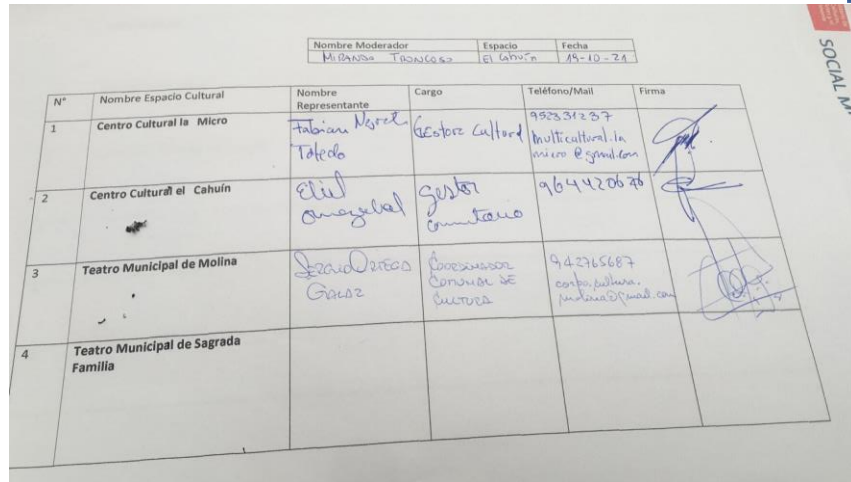 SOCIAL
Nombre Moderador Espacio Fecha
MIRANDA TRONCOSO El Cahuín 19-10-21
N° Nombre Espacio Cultural Nombre Representante Cargo Teléfono/Mail Firma
1 Centro Cultural la Micro Fabian
Toledo
Gestora Cultural
952331237
multicultural.la
micro@gmail.com
2 Centro Cultural el Cahuín Eliel
gestor
comunitario
964420676
3 Teatro Municipal de Molina Sergio Ortega
Galaz
Coordinador
Comunal de
Cultura
942765687
corpo.cultura.
molina@gmail.com
4 Teatro Municipal de Sagrada
Familia